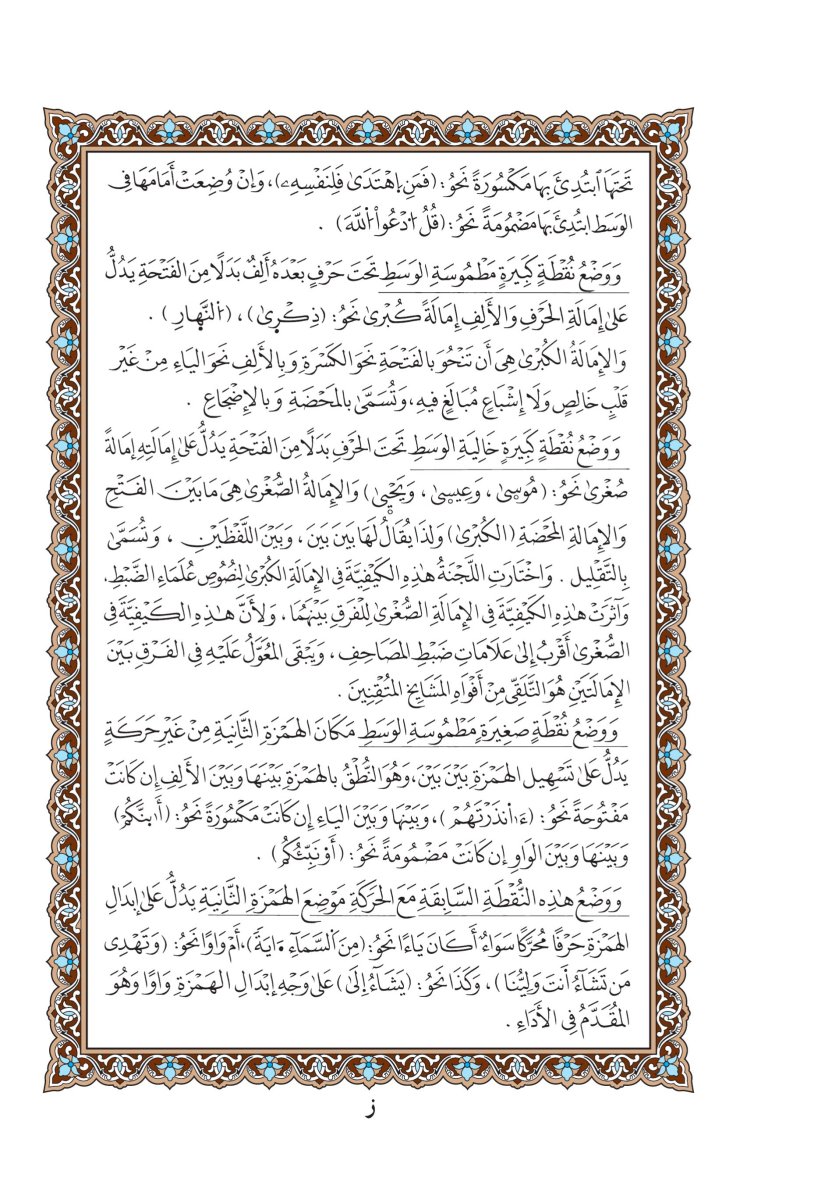 تَحْتَهَا ٱبْتُدِئَ بِهَا مَكْسُورَةً نَحْوُ: (فَمَنِ اِهْتَدَىٰ فَلِنَفْسِهِۦ)، وَإِنْ وُضِعَتْ أَمَامَهَا فِي
الوَسَطِ ابْتُدِئَ بِهَا مَضْمُومَةً نَحْوُ: (قُلُ اُدْعُواْ اُللَّهَ) .
وَوَضْعُ نُقْطَةٍ كَبِيرَةٍ مَطْمُوسَةِ الوَسَطِ تَحْتَ حَرْفٍ بَعْدَهُ أَلِفٌ بَدَلًا مِنَ الفَتْحَةِ يَدُلُّ
عَلَىٰ إِمَالَةِ الحَرْفِ وَالأَلِفِ إِمَالَةً كُبْرَىٰ نَحْوُ: (ذِكْرِىٰ) ، (اَلنَّهَارِ) .
وَالإِمَالَةُ الكُبْرَىٰ هِيَ أَن تَنْحُوَ بِالفَتْحَةِ نَحْوَ الكَسْرَةِ وَبِالأَلِفِ نَحْوَ اليَاءِ مِنْ غَيْرِ
قَلْبٍ خَالِصٍ وَلَا إِشْبَاعٍ مُبَالَغٍ فِيهِ، وَتُسَمَّىٰ بِالمَحْضَةِ وَبِالإِضْجَاعِ .
وَوَضْعُ نُقْطَةٍ كَبِيرَةٍ خَالِيَةِ الوَسَطِ تَحْتَ الحَرْفِ بَدَلًا مِنَ الفَتْحَةِ يَدُلُّ عَلَىٰ إِمَالَتِهِ إِمَالَةً
صُغْرَىٰ نَحْوُ: (مُوسِىٰ ، وَعِيسِىٰ ، وَيَحْيِىٰ) وَالإِمَالَةُ الصُّغْرَىٰ هِيَ مَا بَيْنَ الفَتْحِ
وَالإِمَالَةِ المَحْضَةِ (الكُبْرَىٰ) وَلِذَا يُقَالُ لَهَا بَيْنَ بَيْنَ ، وَبَيْنَ اللَّفْظَيْنِ ، وَتُسَمَّىٰ
بِالتَّقْلِيلِ . وَاخْتَارَتِ اللَّجْنَةُ هَٰذِهِ الكَيْفِيَّةَ فِي الإِمَالَةِ الكُبْرَىٰ لِنُصُوصِ عُلَمَاءِ الضَّبْطِ.
وَآثَرَتْ هَٰذِهِ الكَيْفِيَّةَ فِي الإِمَالَةِ الصُّغْرَىٰ لِلْفَرْقِ بَيْنَهُمَا . وَلأَنَّ هَٰذِهِ الكَيْفِيَّةَ فِي
الصُّغْرَىٰ أَقْرَبُ إِلَىٰ عَلَامَاتِ ضَبْطِ المَصَاحِفِ ، وَيَبْقَى المُعَوَّلُ عَلَيْهِ فِي الفَرْقِ بَيْنَ
الإِمَالَتَيْنِ هُوَ التَّلَقِّي مِنْ أَفْوَاهِ المَشَايِخِ المُتْقِنِينَ .
وَوَضْعُ نُقْطَةٍ صَغِيرَةٍ مَطْمُوسَةِ الوَسَطِ مَكَانَ الهَمْزَةِ الثَّانِيَةِ مِنْ غَيْرِ حَرَكَةٍ
يَدُلُّ عَلَىٰ تَسْهِيلِ الهَمْزَةِ بَيْنَ بَيْنَ، وَهُوَ النُّطْقُ بِالهَمْزَةِ بَيْنَهَا وَبَيْنَ الأَلِفِ إِن كَانَتْ
مَفْتُوحَةً نَحْوُ: (ءَاٰنذَرْتَهُمْ) ، وَبَيْنَهَا وَبَيْنَ اليَاءِ إِن كَانَتْ مَكْسُورَةً نَحْوُ: (أَىِٕنَّكُمْ)
وَبَيْنَهَا وَبَيْنَ الوَاوِ إِن كَانَتْ مَضْمُومَةً نَحْوُ: (أَوُنَبِّئُكُم) .
وَوَضْعُ هَٰذِهِ النُّقْطَةِ السَّابِقَةِ مَعَ الحَرَكَةِ مَوْضِعَ الهَمْزَةِ الثَّانِيَةِ يَدُلُّ عَلَىٰ إِبْدَالِ
الهَمْزَةِ حَرْفًا مُحَرَّكًا سَوَاءٌ أَكَانَ يَاءً نَحْوُ: (مِنَ اَلسَّمَآءِ ۰ايَةً)، أَمْ وَاوًا نَحْوُ: (وَتَهْدِى
مَن تَشَآءُ أَنتَ وَلِيُّنَا) ، وَكَذَا نَحْوُ: (يَشَآءُ إِلَىٰ) عَلَىٰ وَجْهِ إِبْدَالِ الهَمْزَةِ وَاوًا وَهُوَ
المُقَدَّمُ فِي الأَدَاءِ .
ز